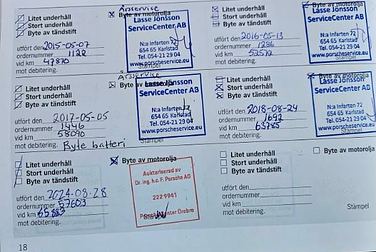 Årsservice
Litet underhåll
Stort underhåll
Byte av tändstift
Byte av motorolja
utfört den 2015-05-07
ordernummer 1122
vid km 47870
mot debitering.
Lasse Jönsson
ServiceCenter AB
N:a Infarten
654 65 Karlstad
Tel. 054-21 23 04
www.porscheservice.eu
Litet underhåll
Stort underhåll
Byte av tändstift
Byte av motorolja
utfört den 2016-05-13
ordernummer 1286
vid km
mot debitering.
Lasse Jönsson
ServiceCenter AB
N:a Infarten 72
654 65 Karlstad
Tel. 054-21 23 04
www.porscheservice.eu
Årsservice
Litet underhåll
Stort underhåll
Byte av tändstift
utfört den 2017-05-05
ordernummer 1446
vid km 58090
mot debitering. Byte batteri
Lasse Jönsson
ServiceCenter AB
N:a Infarten
654 65 Karlstad
Tel. 054-21 23 04
www.porscheservice.eu
Litet underhåll
Stort underhåll
Byte av tändstift
utfört den 2018-08-24
ordernummer 1692
vid km 63785
mot debitering.
Lasse Jönsson
ServiceCenter AB
N:a Infarten 72
654 65 Karlstad
Tel. 054-21 23 04
www.porscheservice.eu
Litet underhåll
Stort underhåll
Byte av tändstift
Byte av motorolja
utfört den 2024-08-28
ordernummer 57603
vid km
mot debitering.
Auktoriserad av
Dr. Ing. h.c. F. Porsche AG
222 9941
Center Örebro
Litet underhåll
Stort underhåll
Byte av tändstift
Byte av motorolja
utfört den
ordernummer
vid km
mot debitering.
Stämpel
18